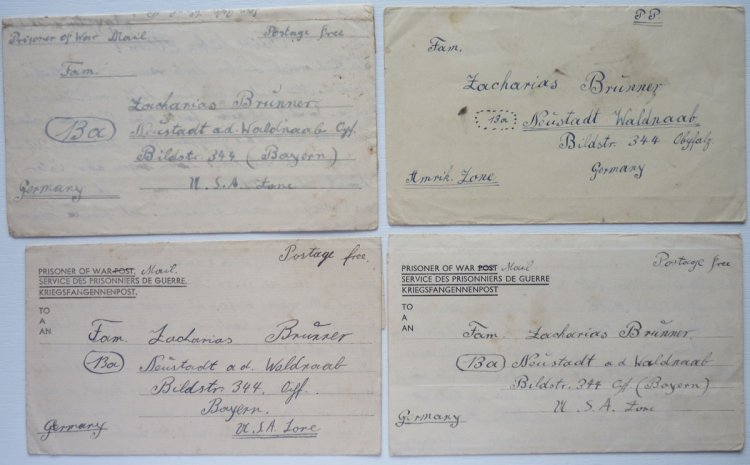 Prisoner of War Mail Postage free
Fam.
Zacharias Brunner
13a Neustadt a.d. Waldnaab Opf.
Bildstr. 344 (Bayern)
Germany U.S.A. Zone
P.P.
Fam.
Zacharias Brunner
13a Neustadt Waldnaab
Bildstr. 344 Obpfalz
Germany
Amrik. Zone
Postage free.
PRISONER OF WAR POST, Mail.
SERVICE DES PRISONNIERS DE GUERRE,
KRIEGSFANGENNENPOST,
TO
A
AN
Fam. Zacharias Brunner
13a Neustadt a.d. Waldnaab
Bildstr. 344. Opf.
Bayern.
Germany U.S.A. Zone
Postage free
PRISONER OF WAR POST Mail
SERVICE DES PRISONNIERS DE GUERRE
KRIEGSFANGENNENPOST
TO
A
AN
Fam. Zacharias Brunner
13a Neustadt a.d. Waldnaab
Bildstr. 344 Opf (Bayern)
Germany U.S.A. Zone